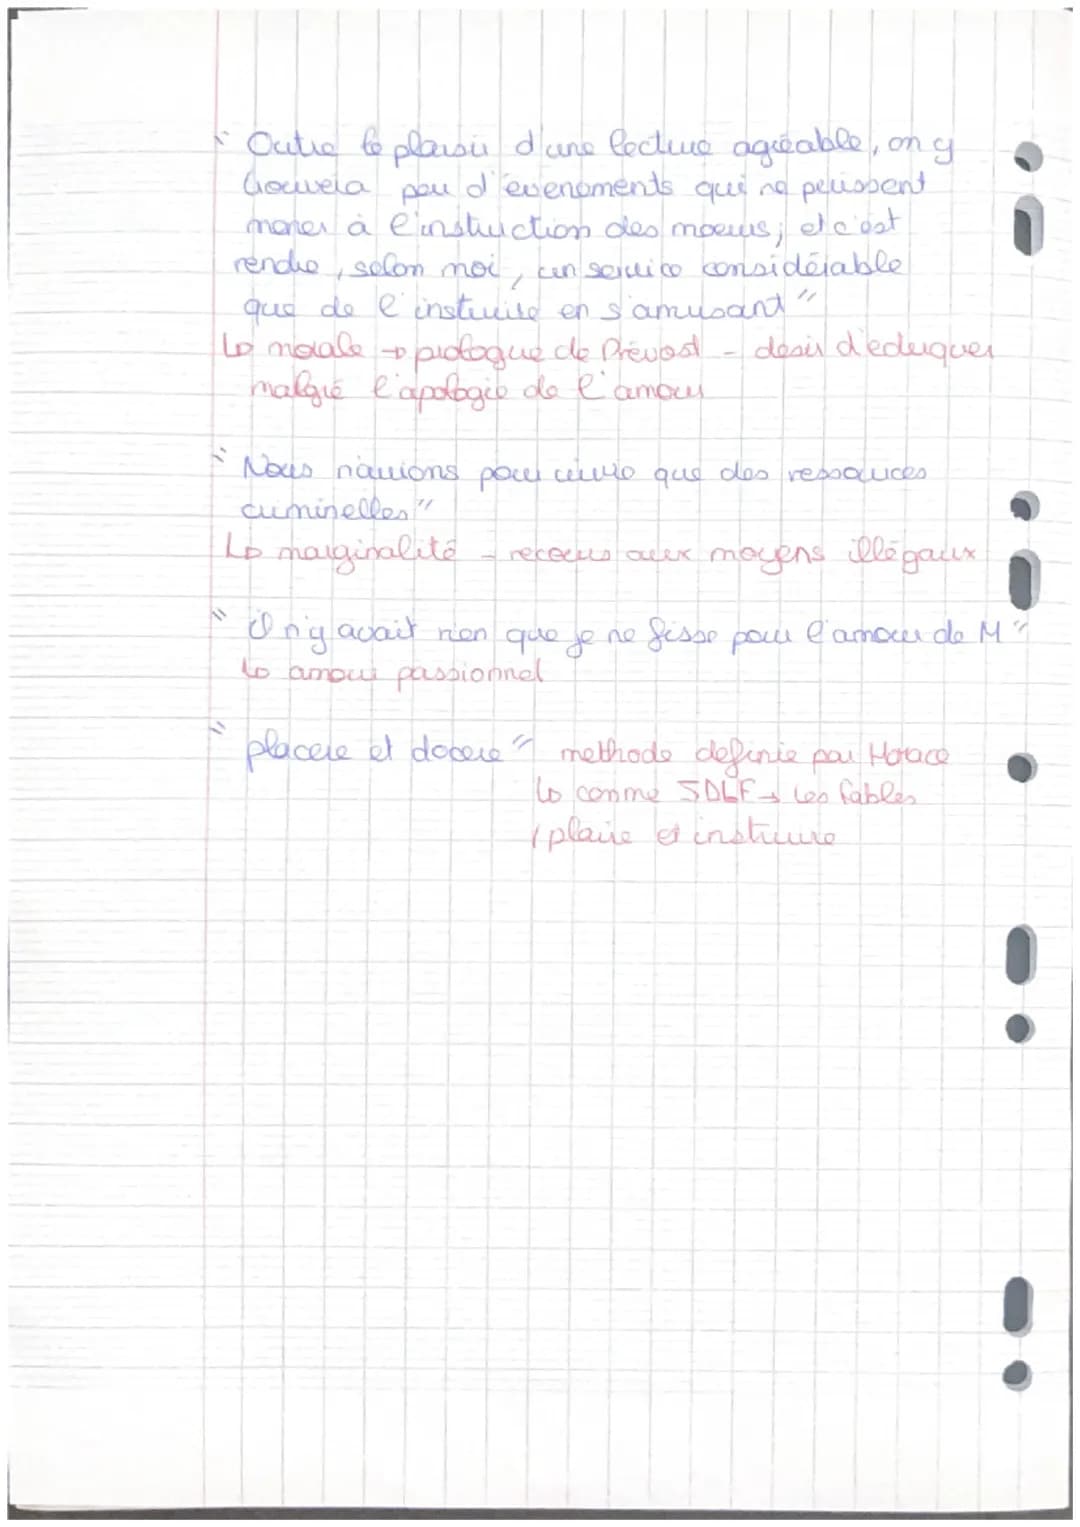 " Outre le plaisir d'une lecture agréable, on y
trouvera peu d'évenements qui ne puissent
mener à l'instruction des moeurs; et c'est
rendre, selon moi, un service considérable
que de l'instruire en s'amusant"
↳ morale → prologue de Prévost - désir d'eduquer
malgré l'apologie de l'amour
" Nous n'avions pour vivre que des ressources
criminelles"
↳ marginalité - recours aux moyens illégaux
" il n'y avait rien que je ne fisse pour l'amour de M"
↳ amour passionnel
" placere et docere" methode definie par Horace
↳ comme JDLF → Les fables
plaire et instruire